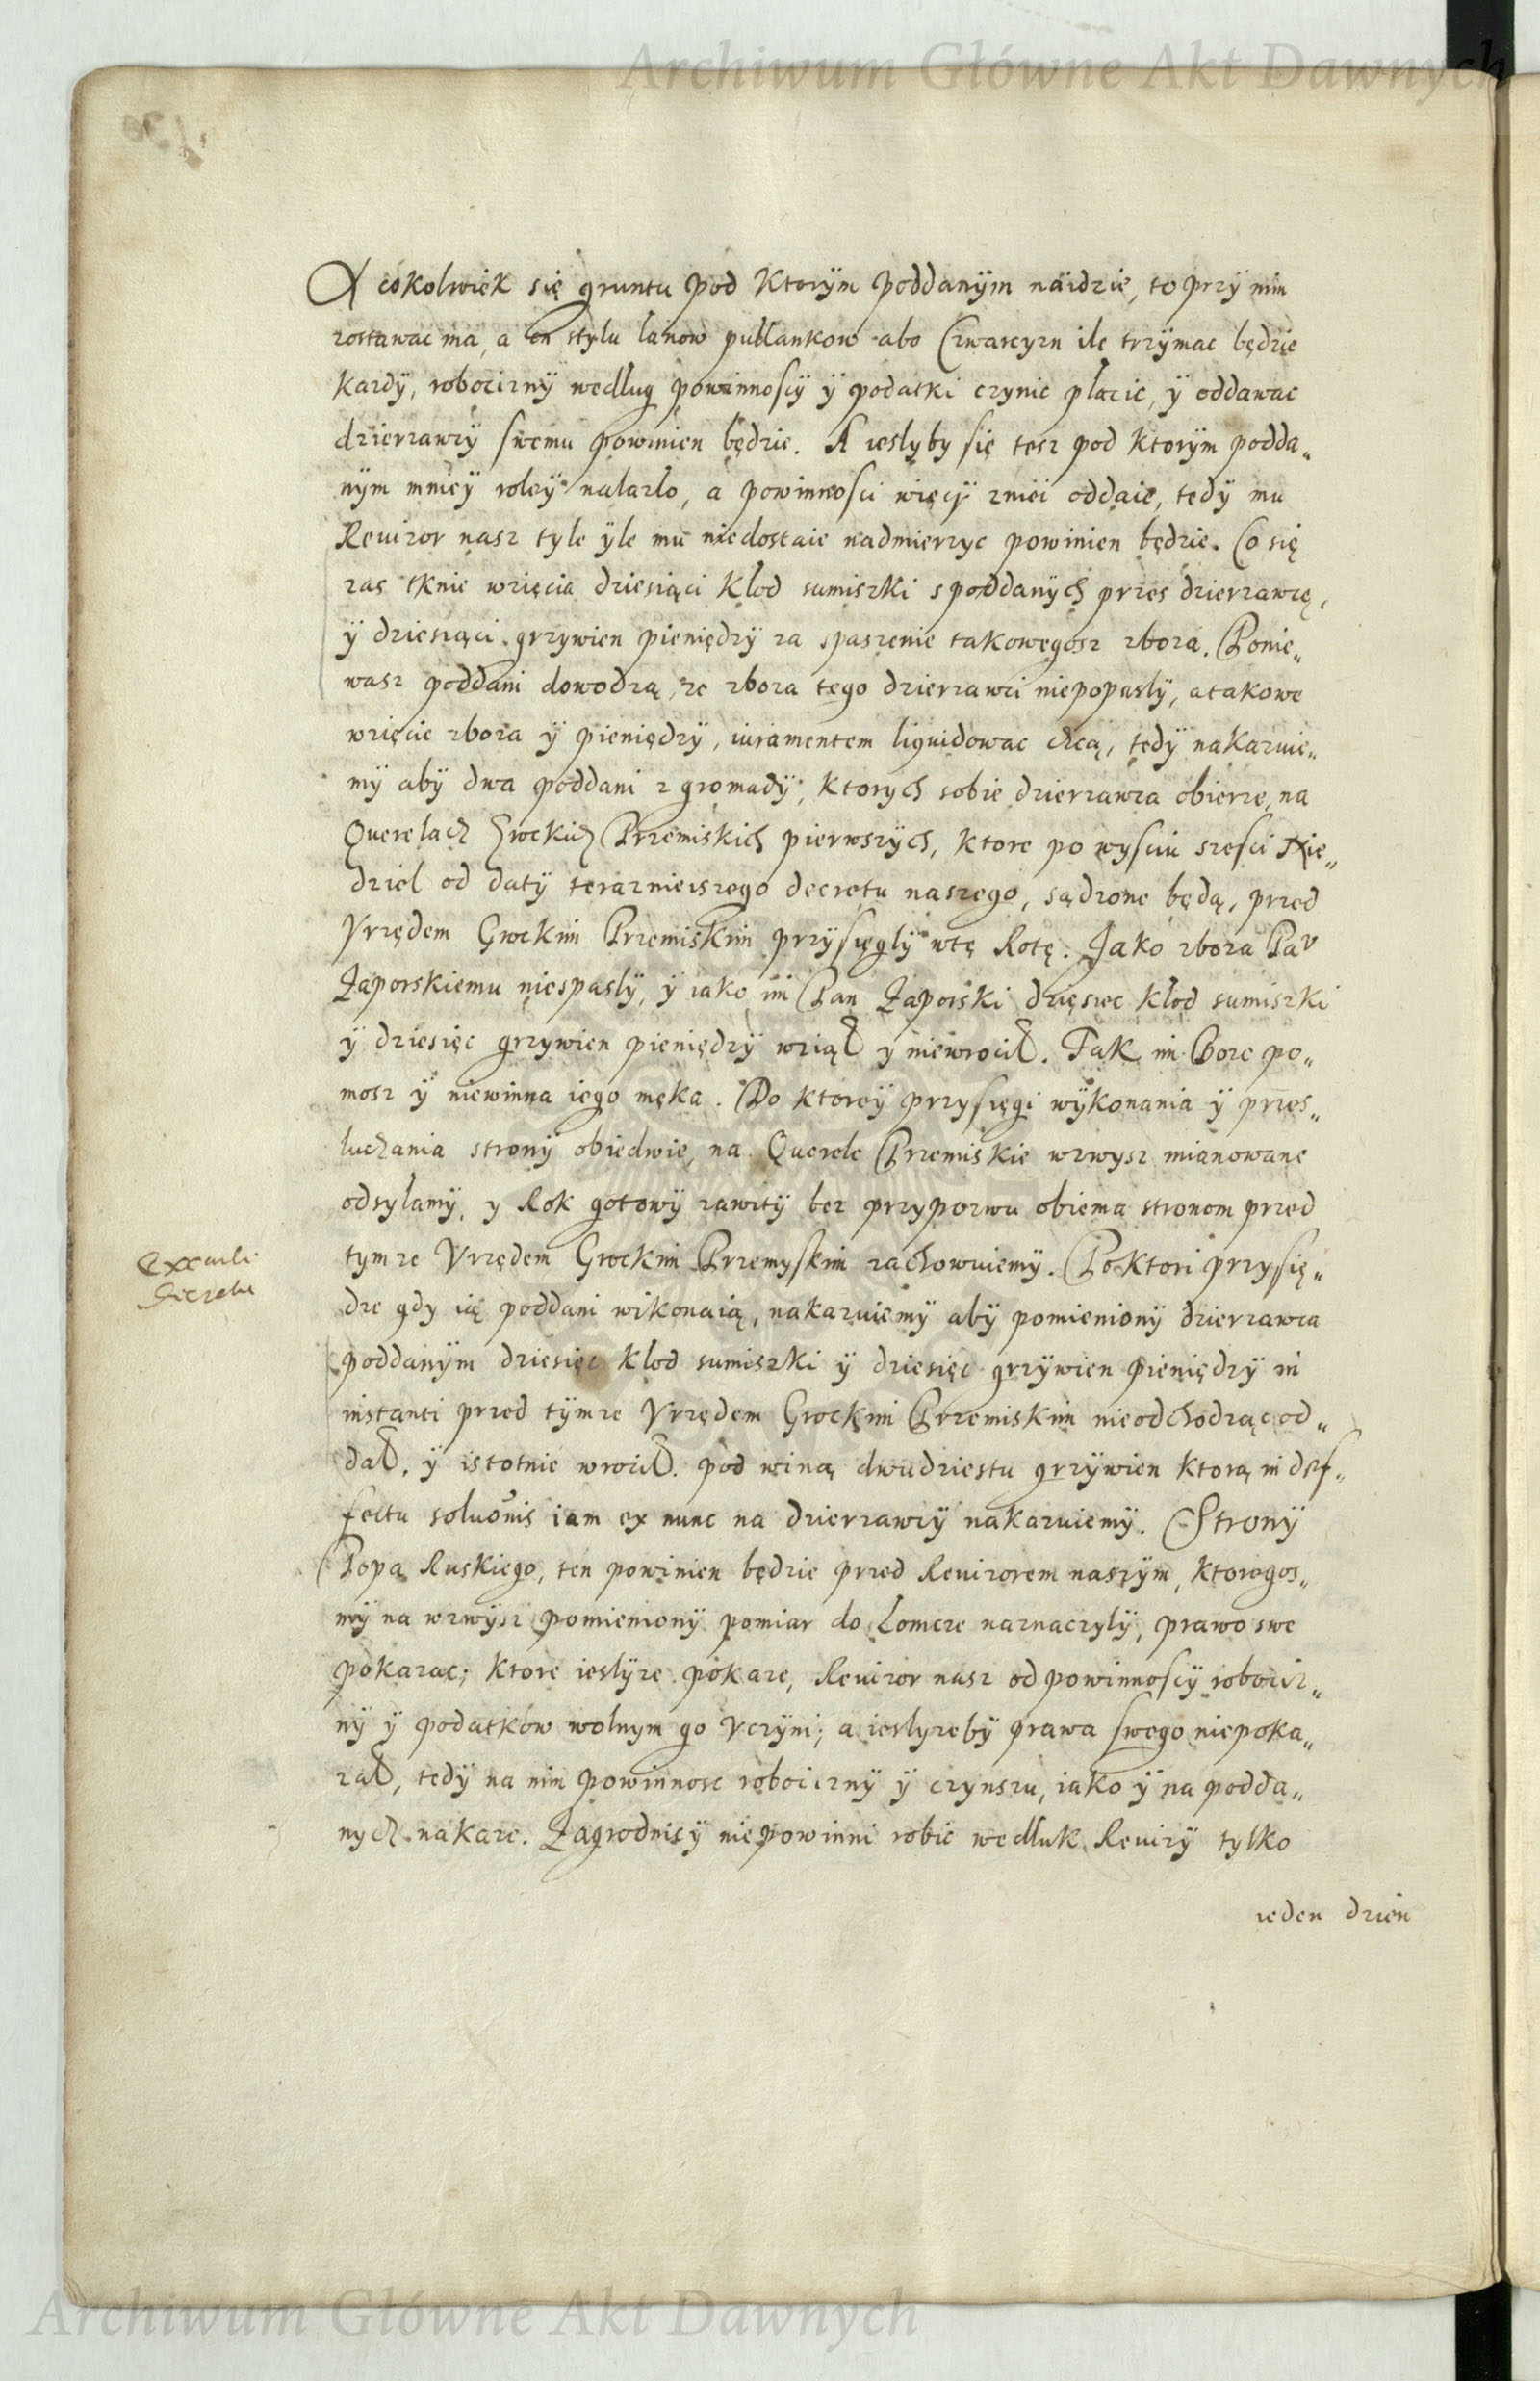 Archiwum Główne Akt Dawnych
A cokolwiek się gruntu pod ktorÿm poddanÿm naidzie, to przÿ nim
zostawac ma, a on stylu lanow pullankow abo Czwarcyzn ile trzÿmac będzie
kazdÿ, robociznÿ według powinnoscÿ ÿ podatki czynic płacic, ÿ oddawac
dzierzawcÿ swemu powinien będzie. A iesly by się tesz pod ktorÿm podda„
nÿm mnieÿ roleÿ nalazlo, a powinnosci więcÿ zniei oddaie, tedÿ mu
Revizor nasz tyle ÿle mu niedostaie nadmierzyc powinien będzie. Co się
zas tknie wzięcia dziesiąci klod sumiszki s poddanÿch przes dzierzawcę,
ÿ dziesiąci grzywien pieniędzÿ za spaszenie takowegosz zboza. Ponie„
wasz poddani dowodzą, ze zboza tego dzierzawci niepopaslÿ, a takowe
wzięcie zboza ÿ pieniędzÿ, iuramentem liquidowac chcą, tedÿ nakazuie„
mÿ abÿ dwa poddani z gromadÿ, ktorych sobie dzierzawca obierze, na
Querelach Grockich Przemiskich pierwszÿch, ktore po wysciu szesci Nie„
dziel od datÿ terazniejszego decretu naszego, sądzone będą, przed
Vrzędem Grockim Przemiskim przÿsięglÿ wtę Rotę. Jako zboza Pav
Zaporskiemu niespaslÿ, ÿ iako im Pan Zaporski dzięsiec klod sumiszki
ÿ dziesięc grzywien pieniędzÿ wziął y niewrocił. Tak im Boze po„
mosz ÿ niewinna iego męka. Do ktoreÿ przysięgi wÿkonania ÿ przes„
luchania stronÿ obiedwie, na Querele Przemiskie wzwysz mianowane
odsylamÿ, y Rok gotowÿ zawitÿ bez przypozwu obiema stronom przed
tymze Vrzędem Grockim Przemyskim zachowuiemÿ. Po ktori przysię„
Executi
Decretu
dze gdy ią poddani wikonaią, nakazuiemÿ abÿ pomienionÿ dzierzawca
poddanÿm dziesięc klod sumiszki ÿ dziesięc grzÿwien pieniędzÿ in
instanti przed tÿmze Vrzędem Grockim Przemiskim nieodchodząc od„
dał, ÿ istotnie wrocił. pod winą dwudziestu grzÿwien ktorą in def„
fectu soluonis iam ex nunc na dzierzawcÿ nakazuiemÿ. Stronÿ
Popa Ruskiego, ten powinien będzie przed Revizorem naszÿm, ktoregos„
mÿ na wzwÿsz pomienionÿ pomiar do Lomcze naznaczylÿ, prawo swe
pokazac; ktore ieslÿze pokaze, Revizor nasz od powinnoscÿ robociz„
nÿ ÿ podatkow wolnym go Vczÿni; a ieslyzebÿ prawa swego niepoka„
zał, tedÿ na nim powinnosc robociznÿ ÿ czynszu, iako ÿ na podda„
nych nakaze. Zagrodnicÿ niepowinni robic wedluk Revizÿ tylko
ieden dzien
Archiwum Główne Akt Dawnych